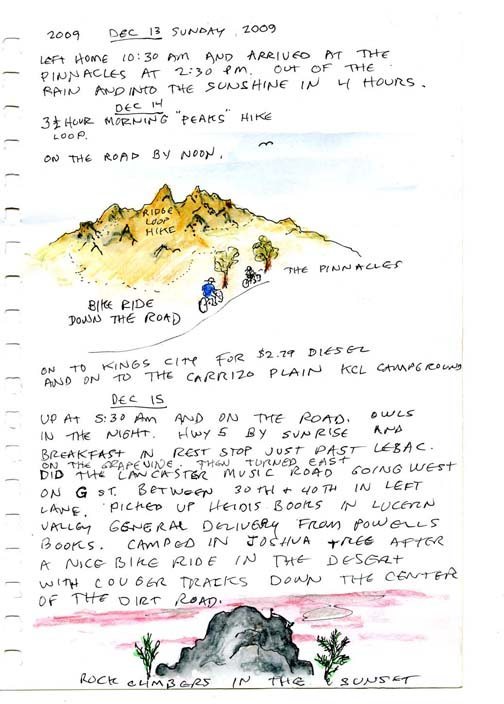 2009 DEC 13 SUNDAY, 2009
LEFT HOME 10:30 AM AND ARRIVED AT THE
PINNACLES AT 2:30 PM. OUT OF THE
RAIN AND INTO THE SUNSHINE IN 4 HOURS.
DEC 14
3½ HOUR MORNING "PEAKS" HIKE
LOOP.
ON THE ROAD BY NOON.
RIDGE
LOOP
HIKE
THE PINNACLES
BIKE RIDE
DOWN THE ROAD
ON TO KINGS CITY FOR $2.79 DIESEL
AND ON TO THE CARRIZO PLAIN KCL CAMPGROUND
DEC 15
UP AT 5:30 AM AND ON THE ROAD. OWLS
IN THE NIGHT. HWY 5 BY SUNRISE AND
BREAKFAST IN REST STOP JUST PAST LEBAC.
ON THE GRAPEVINE. THEN TURNED EAST
DID THE LANCASTER MUSIC ROAD GOING WEST
ON G ST. BETWEEN 30TH + 40TH IN LEFT
LANE. PICKED UP HEIDIS BOOKS IN LUCERN
VALLEY GENERAL DELIVERY FROM POWELLS
BOOKS. CAMPED IN JOSHUA TREE AFTER
A NICE BIKE RIDE IN THE DESERT
WITH COUGER TRACKS DOWN THE CENTER
OF THE DIRT ROAD.
ROCK CLIMBERS IN THE SUNSET